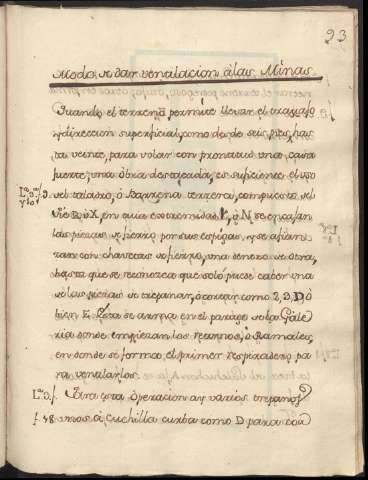 23
Modo de dar ventilacion á las Minas.
Quando el terreno permite llevar el trabajo
y direccion superficial, como desde seis pies, has
ta veinte, para volar con prontitud una
fuerte, una obra destacada, es suficiente el uso
del taladro, ó Barrena terrera, compuesto del
X, en cuia extremidad ó N, se encajan
las piezas de fierro por sus espigas, y se afian
zan con chavetas de fierro, una dentro de otra,
hasta que se reconozca que solo puede caber una
de las piezas de trepanar, ó cortar como 2, D, D, ó
bien E. Esta se arrima en el parage de la Gale
ria donde empiezan los ó Ramales,
en donde se forma el primer respiradero pa
ra ventilarlos.
Para esta operacion ay varios trepano
f. 48 unos á cuchilla curba como D para